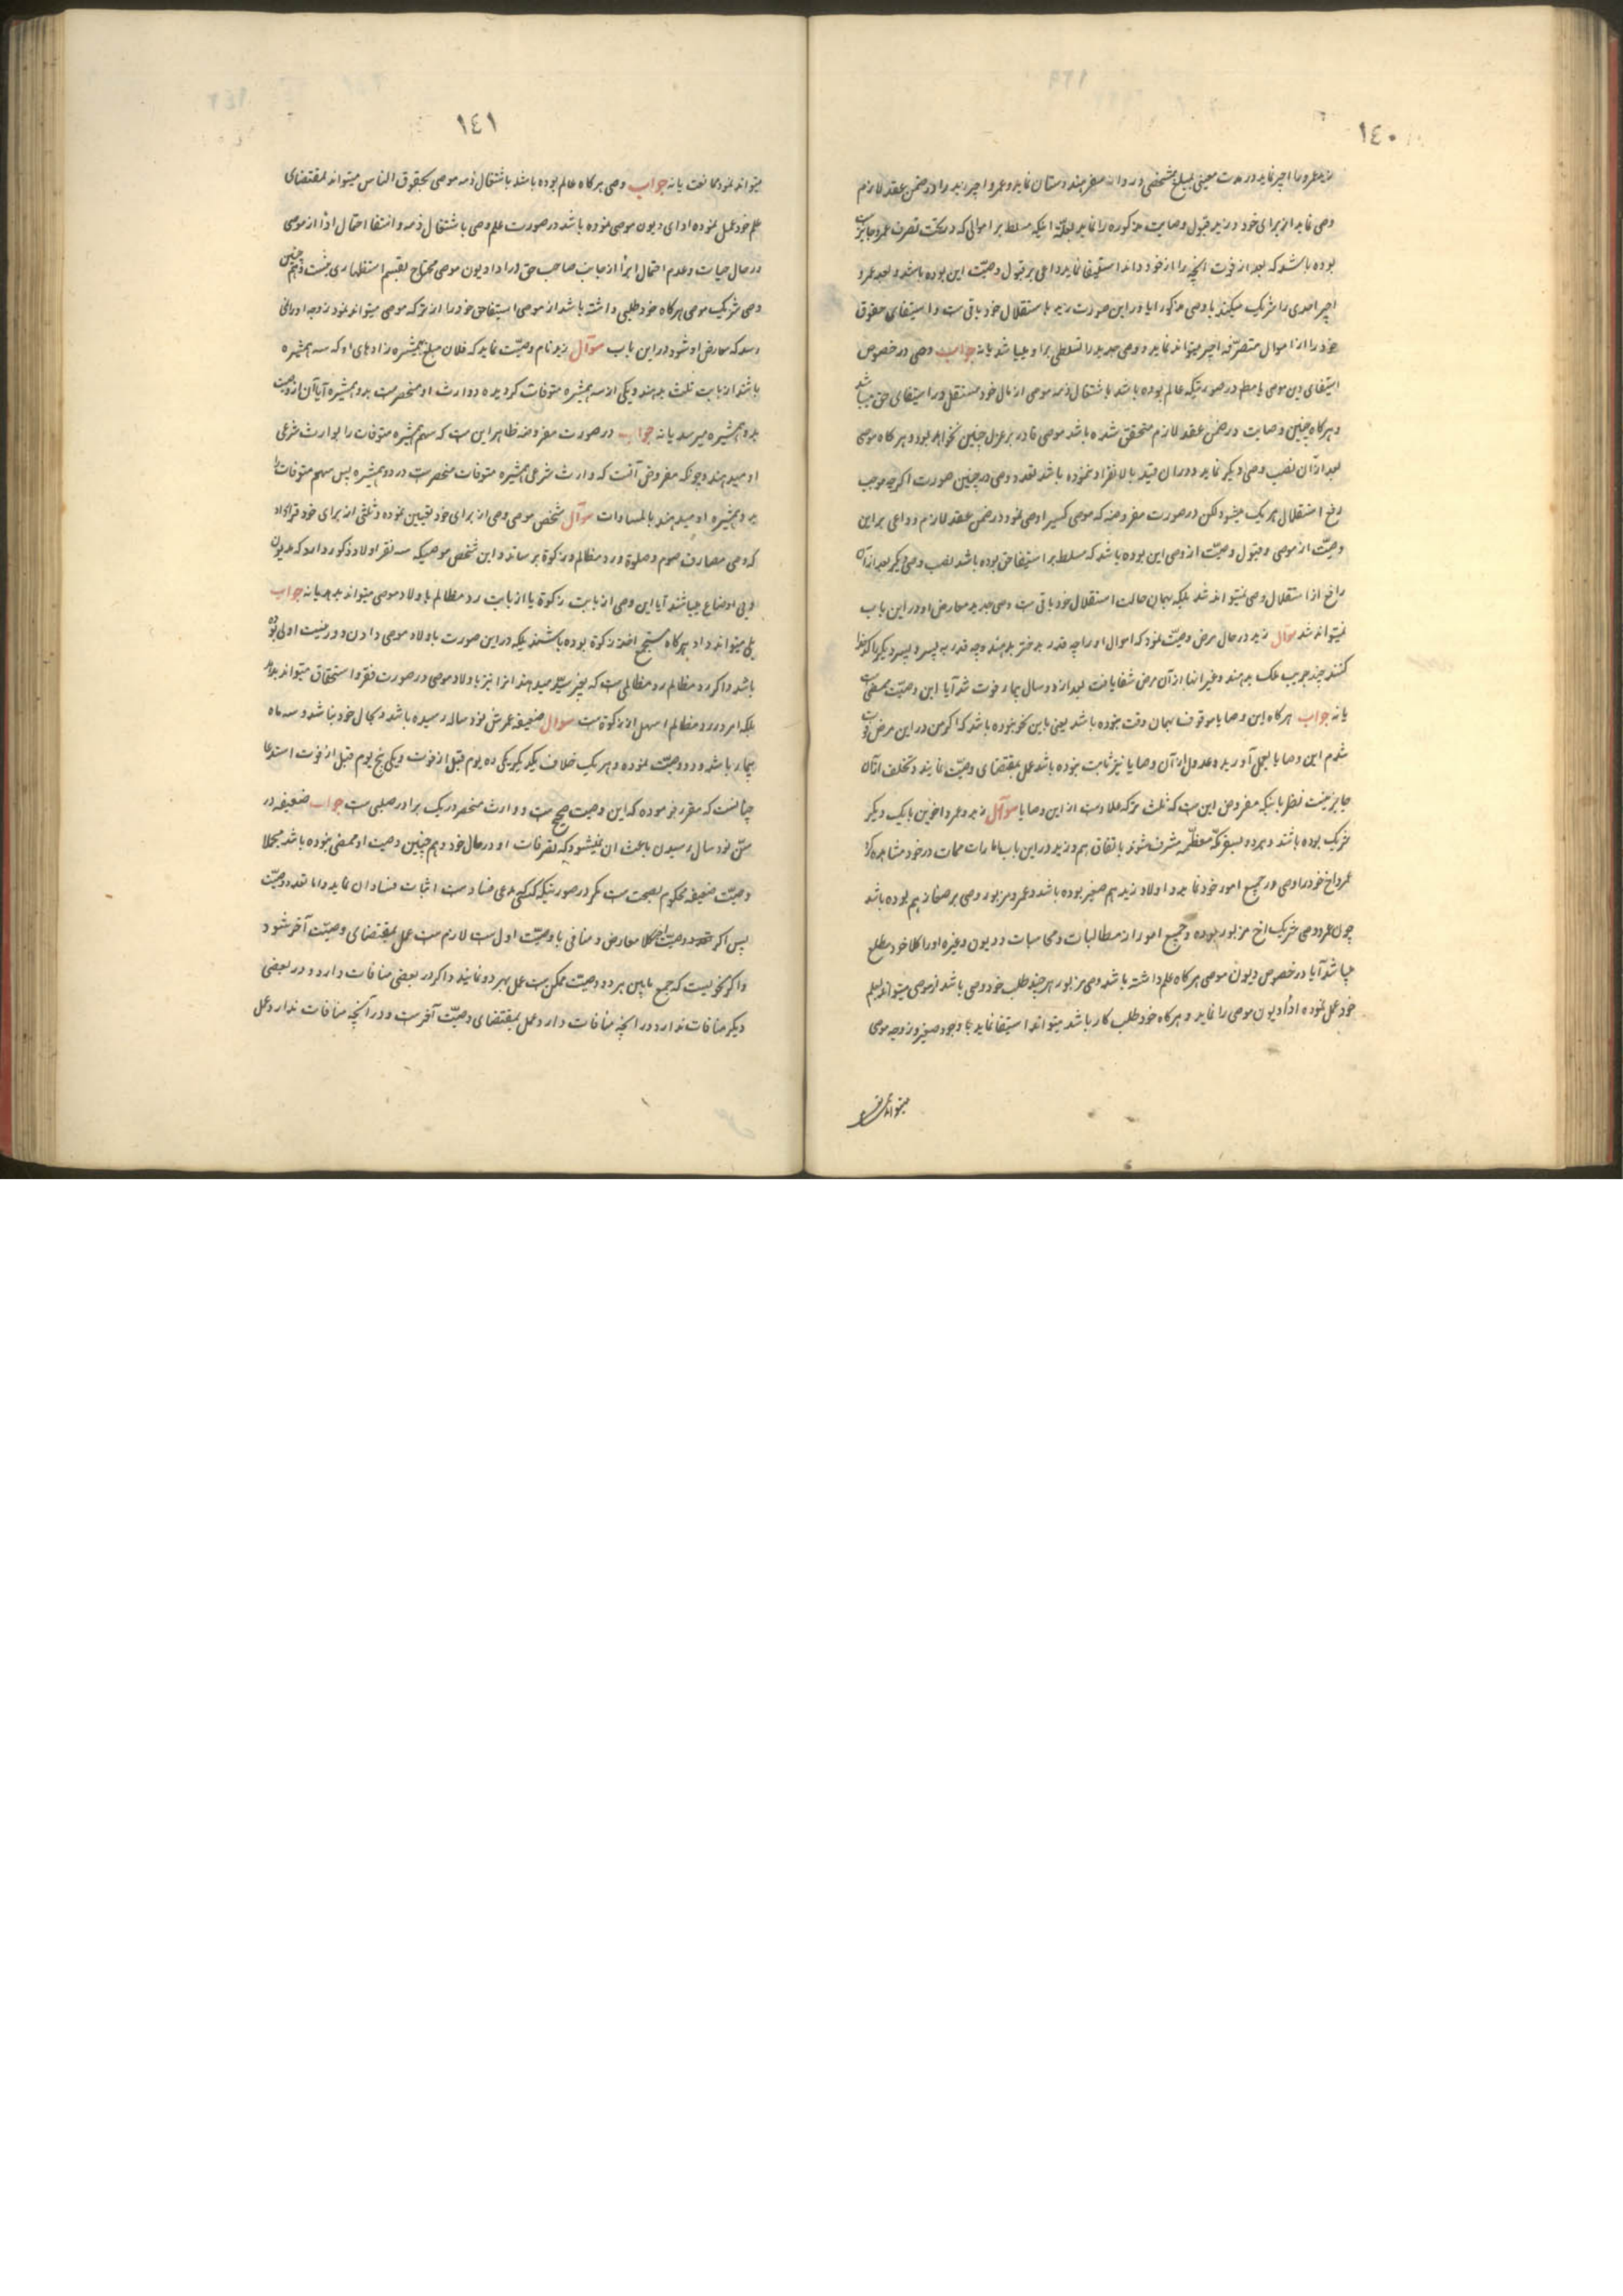 ١٤٠
زید عمرو را اجیر نماید در مدت معینی بمبلغ مشخصی و روانه سفر هندوستان نماید و عمرو اجیر زید را در ضمن عقد لازم
وصی نماید از برای خود و زید قبول وصایت مذکوره را نماید بعلّة اینکه مسلط بر اموالی که در تحت تصرف عمرو
بوده باشد که بعد از فوت آنچه را از خود داند استیفا نماید و داعی بر قبول وصیّت این بوده باشد و بعد عمرو
اجیر احدی را شریک میکند با وصی مذکور آیا در این صورت زید با ستقلال خود باقی ست و استیفای حقوق
خود را از اموال متصرّفه اجیر میتواند نماید و وصی جدید را تسلطی بر او میباشد یا نه جواب وصی در خصوص
استیفای دین موصی له مطلع در صورتیکه عالم بوده باشد باشتغال ذمه موصی از مال خود مستقل در استیفای حق میباشد
و هرگاه چنین وصایت در ضمن عقد لازم متحقق شده باشد موصی قادر بر عزل چنین نخواهد بود و هرگاه موصی
بعد از آن نصب وصی دیگر نماید و در آن قید بالانفراد ننموده باشد تعدد وصی در چنین صورت اگرچه موجب
رفع استقلال هر یک میشود لکن در صورت مفروضه که موصی کسیرا وصی نمود در ضمن عقد لازم و داعی بر این
وصیّت از موصی و قبول وصیّت از وصی این بوده باشد که مسلط بر استیفا حق بوده باشد نصب وصی دیگر بعد از آن
رافع از استقلال وصی نمیتواند شد بلکه بهمان حالت استقلال خود باقی ست وصی جدید معارض او در این باب
نمیتواند شد سؤال زید در حال مرض وصیّت نمود که اموال او را چه قدر بدختر بدهند و چه قدر به پسر و پسر دیگر را کدخدا
کنند چند جریب ملک بدهند و غیر اینها از آن مرض شفا یافت بعد از دو سال بیمار فوت شد آیا این وصیّت ممضی
یا نه جواب هرگاه این وصایا موقوف بهمان وقت نبوده باشد یعنی باین نحو نبوده باشد که اگر من در این مرض فوت
شدم این وصایا بعمل آورید و عدول از آن وصایا نیز ثابت نبوده باشد عمل بمقتضای وصیّت نمایند و تخلف از آن
جایز نیست نظر باینکه مفروض این ست که ثلث ترکه علاوه ست از این وصایا سؤال زید و عمرو اخوین با یک دیگر
شریک بوده باشند و هر دو بسفر مکّه معظّمه مشرف شوند باتفاق هم و زید در این باب امارات ممات در خود مشاهده کرد
عمرو اخ خود را وصی در جمیع امور خود نماید و اولاد زید هم صغیر بوده باشد و عمرو مزبور وصی بر صغار هم بوده باشد
چون عمرو وصی شریک اخ مزبور بوده و جمیع امور از مطالبات و محاسبات و دیون و غیره او را کلا خود مطلع
میباشد آیا در خصوص دیون موصی هرگاه علم داشته باشد وصی مزبور هر چند طلب خود وصی باشد از موصی میتواند بعلم
خود عمل نموده ادا دیون موصی را نماید و هرگاه خود طلب کار باشد میتواند استیفا نماید با وجود صغیر و زوجه موصی
میتواند نمود
١٤١
میتواند نمود ممانعت یا نه جواب وصی هرگاه عالم بوده باشد باشتغال ذمه موصی بحقوق الناس میتواند بمقتضای
علم خود عمل نموده ادای دیون موصی نموده باشد در صورت علم وصی باشتغال ذمه و انتفا احتمال ادا از موصی
در حال حیات و عدم احتمال ابرا از جانب صاحب حق در ادا دیون موصی محتاج بقسم استظهاری نیست و هم چنین
وصی شریک موصی هرگاه خود طلبی داشته باشد از موصی استیفا حق خود را از ترکه موصی میتواند نمود زوجه او را نمی
رسد که معارض او شود در این باب سؤال زید نام وصیّت نماید که فلان مبلغ بهمشیره زادهای او که سه همشیره
باشند از بابت ثلث بدهند و یکی از سه همشیره متوفات گردیده و وارث او منحصرست بدو همشیره آیا آن از وصیت
بدو همشیره میرسد یا نه جواب در صورت مفروضه ظاهر این ست که سهم همشیره متوفات را بوارث شرعی
او میدهند و چونکه مفروض آنست که وارث شرعی همشیره متوفات منحصرست در دو همشیره پس سهم متوفات را
بدو همشیره او میدهند بالمساوات سؤال شخص موصی وصی از برای خود تعیین نموده و ثلثی از برای خود قرار داد
که وصی مصارف صوم و صلوة و رد مظالم و زکوة برساند و این شخص موصی که سه نفر اولاد ذکور دارد که مدیون
و بی اوضاع میباشند آیا این وصی از بابت زکوة یا از بابت رد مظالم باولاد موصی میتواند بدهد یا نه جواب
بلی میتواند داد هرگاه مستحق اخذ زکوة بوده باشند بلکه در این صورت باولاد موصی دادن دور نیست اولی بوده
باشد و اگر رد مظالم رد مظالمی ست که بغیر سیّد میدهند انرا نیز باولاد موصی در صورت فقر و استحقاق میتواند بدهد
بلکه امر در رد مظالم اسهل از زکوة ست سؤال ضعیفه عمرش نود ساله رسیده باشد و بحال خود نباشد و سه ماه
بیمار باشد و دو وصیّت نموده و هر یک خلاف یکدیگر یکی ده یوم قبل از فوت و یکی پنج یوم قبل از فوت استدعا
چنانست که مقرر فرموده که این وصیت صحیح ست و وارث منحصر در یک برادر صلبی ست جواب ضعیفه در
سنّ نود سال رسیدن باعث ان نمیشود که تصرفات او در حال خود و هم چنین وصیت او ممضی نبوده باشد مجملا
وصیّت ضعیفه محکوم بصحت ست مگر در صورتیکه کسی مدعی فسادست اثبات فساد ان نماید و اما تعدد وصیّت
پس اگر وصیّت اخر کلا معارض و منافی با وصیّت اول ست لازم ست عمل بمقتضای وصیّت آخر شود
و اگر نحویست که جمع ما بین هر دو وصیت ممکن ست عمل بهر دو نمایند و اگر در بعضی منافات دارد و در بعضی
دیگر منافات ندارد در انچه منافات دارد عمل بمقتضای وصیّت آخرست و در آنچه منافات ندارد عمل